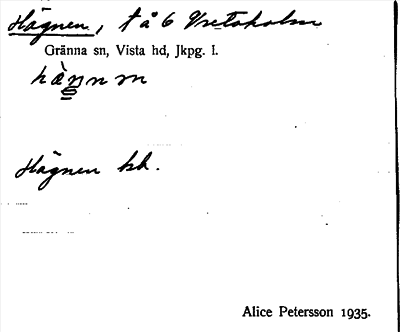 Hägnen, t å 6 Vretaholm
Gränna sn, Vista hd, Jkpg. l.
Hägnen hk.
Alice Petersson 1935.